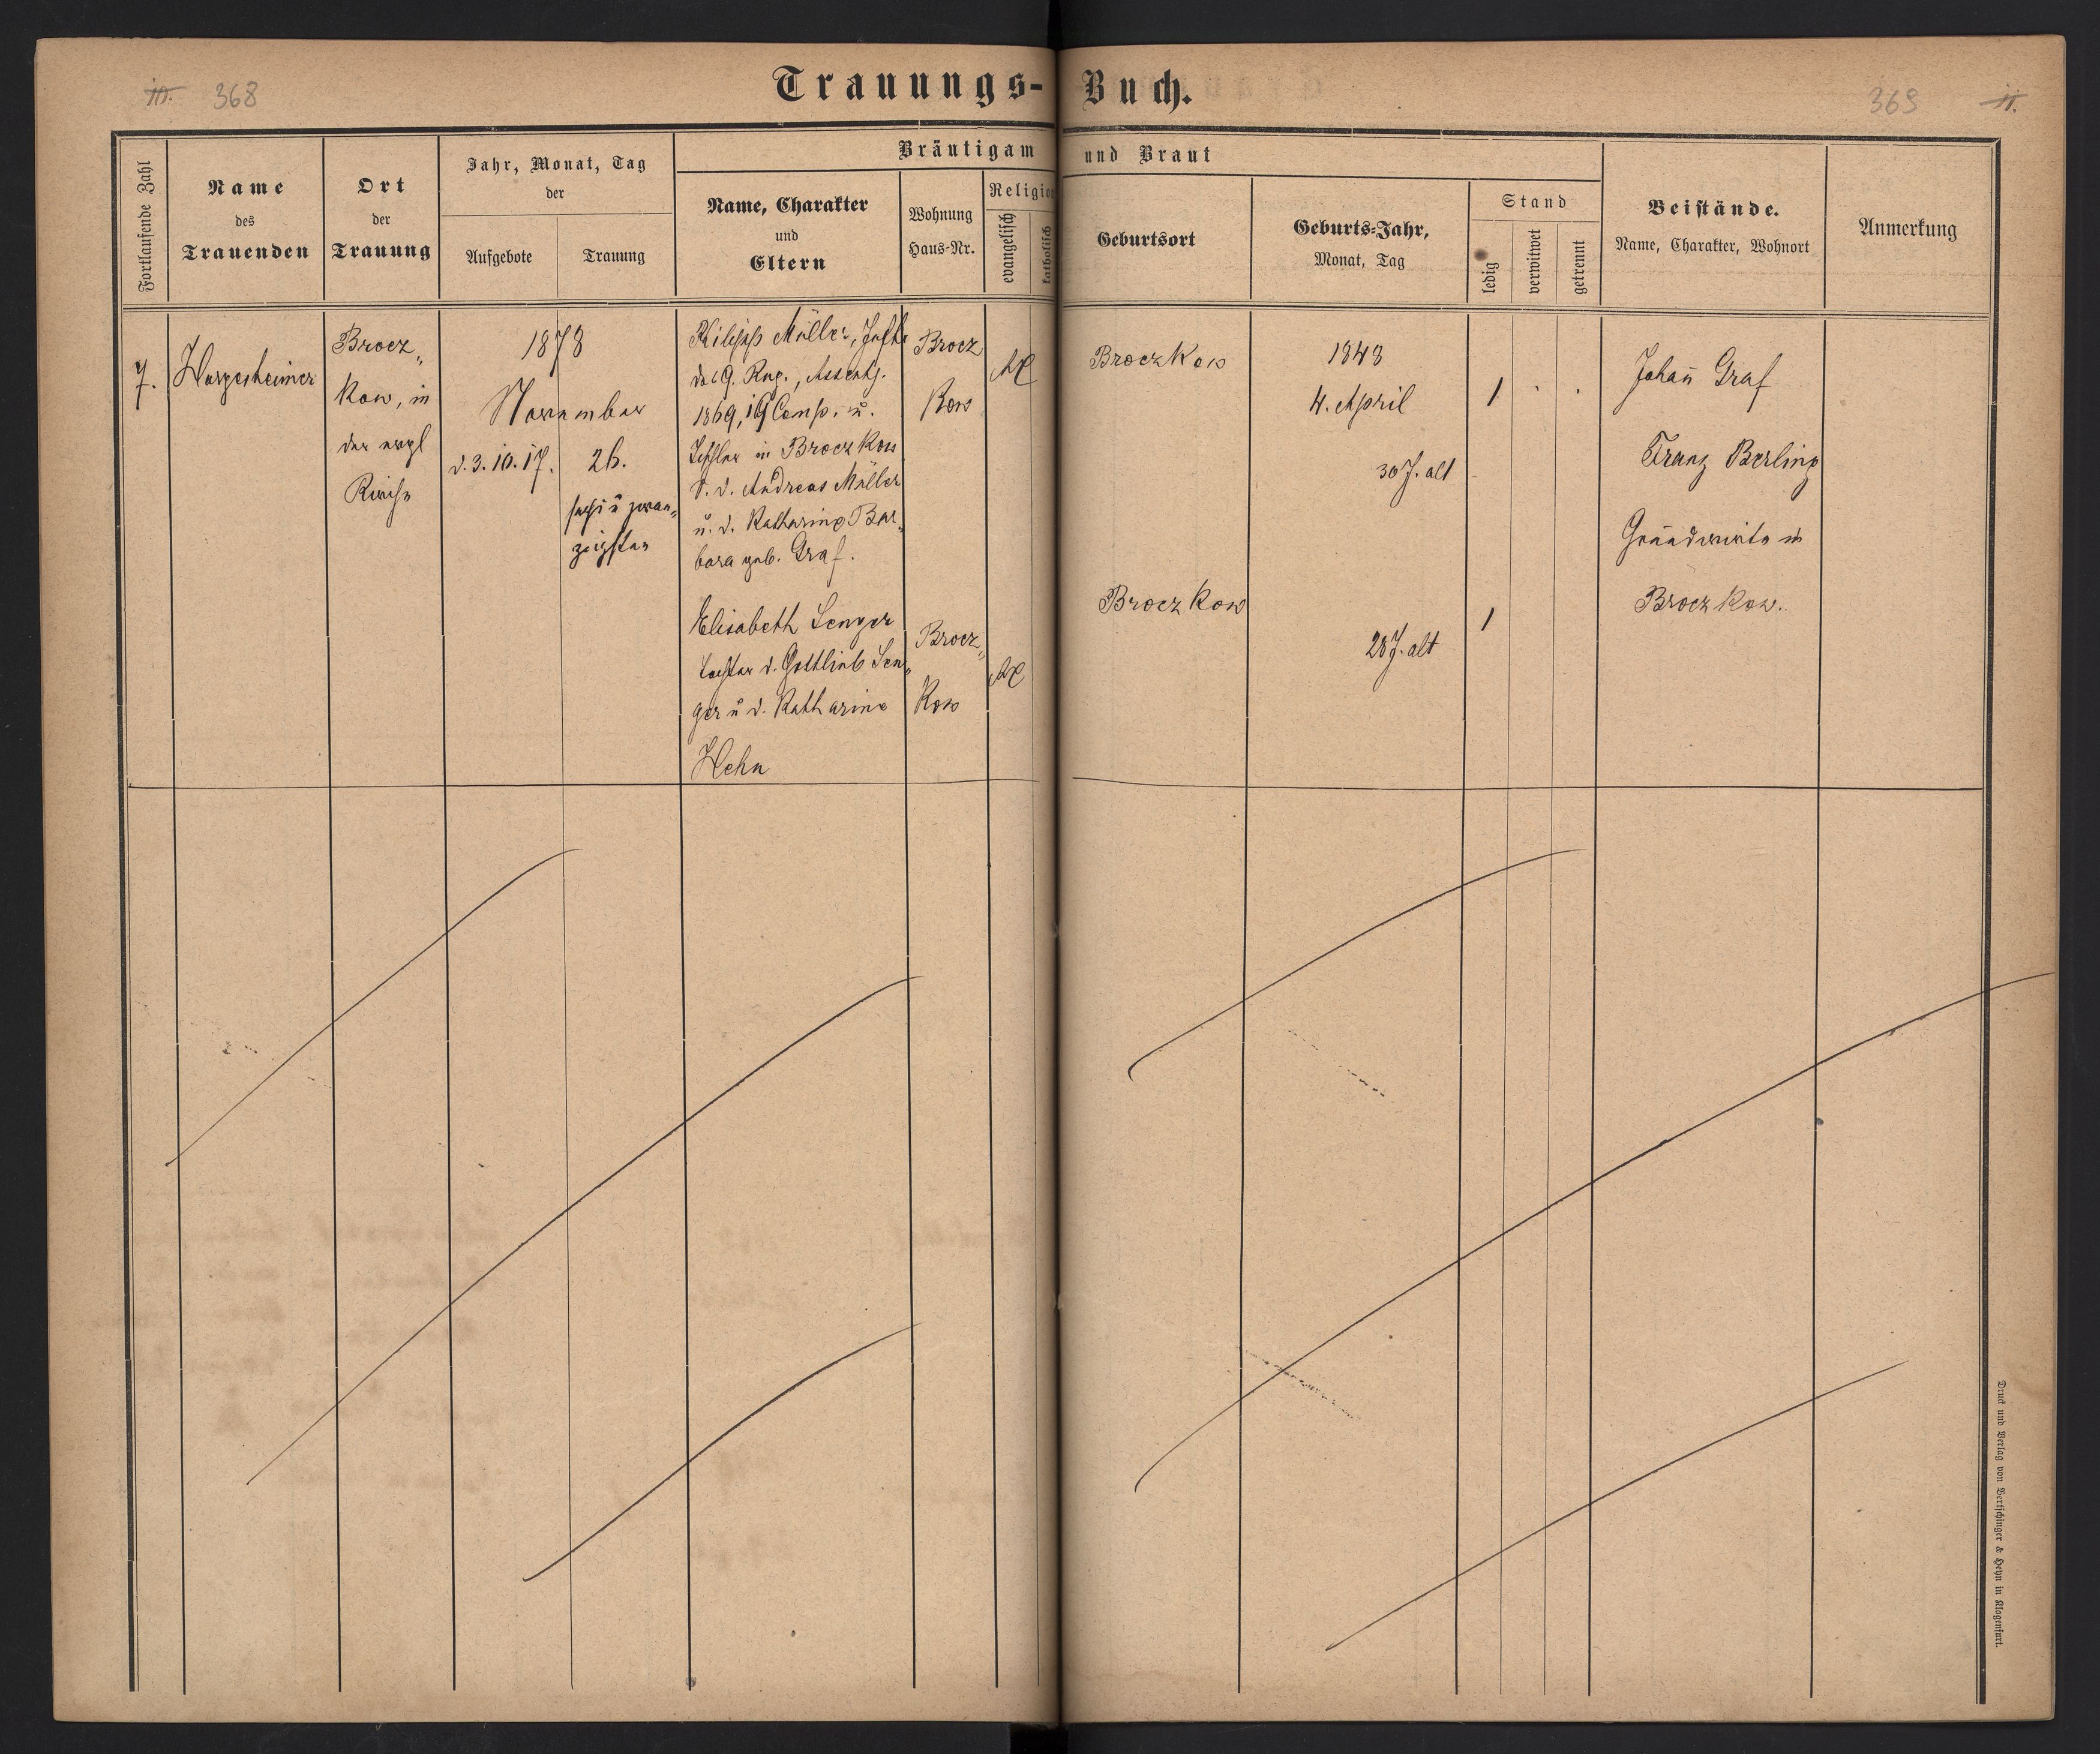 368
Trauungs-Buch.
369
II.
Fortlaufende Zahl
Name
des
Trauenden
Ort
der
Trauung
Jahr, Monat, Tag
der
Aufgebote
Trauung
Bräutigam und Braut
Name, Charakter
und
Eltern
Wohnung
Haus-Nr.
Religion
evangelisch
katholisch
Geburtsort
Geburts-Jahr,
Monat, Tag
Stand
ledig
verwitwet
getrennt
Beistände.
Name, Charakter, Wohnort
Anmerkung
7.
Hargesheimer
Brocz„
kow, in
der evgl
Kirche
1878
November
d. 3. 10. 17.
26.
sechs u zwan„
zigsten
Philipp Müller,
des 9. Rng., Assentj.
1869, Comp. u.
in Broczkow
S. d. Andreas Müller
u. d. Katharina Bar„
bara geb. Graf.
Brocz
kow
AC
Broczkow
1848
4. April
30 J. alt
1
Johan̄ Graf
Franz Berling
Grundwirte in
Broczkow.
Elisabeth Senger
Tochter d. Gottlieb Sen„
ger u d. Katharine
Hehn
Brocz„
kow
AC
Broczkow
28 J. alt
1
Druck und Verlag von Bertschinger & Heyn in Klagenfurt.